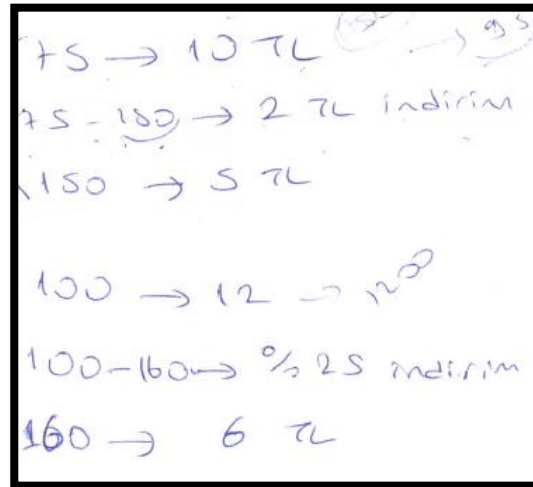 75 → 10 TL → 95
75-150 → 2 TL indirim
150 → 5 TL
100 → 12 → 1200
100-160 → % 25 indirim
160 → 6 TL